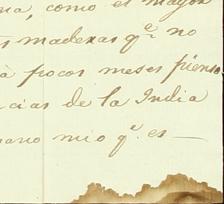 na, como el mayor
s maderas q.e no
à pocos meses pienso
cias de la India
ano mio q.e es —